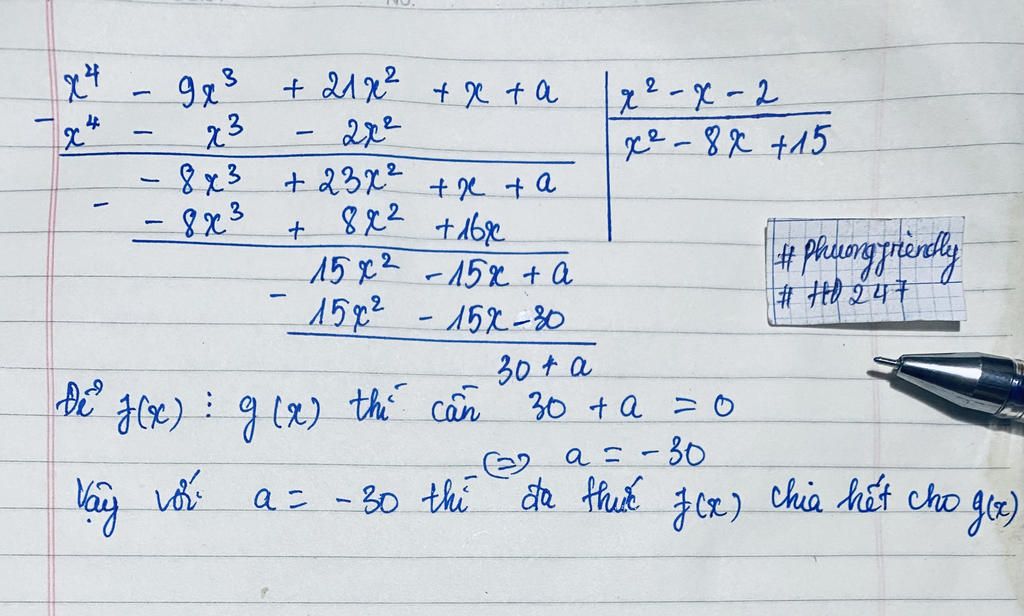 x⁴ - 9x³ + 21x² + x + a
x² - x - 2
- x⁴ - x³ - 2x²
x² - 8x + 15
- 8x³ + 23x² + x + a
- - 8x³ + 8x² + 16x
15x² - 15x + a
- 15x² - 15x - 30
30 + a
# phuongfriendly
# HD 247
Để f(x) ⋮ g(x) thì cần 30 + a = 0
⇔ a = -30
Vậy với a = -30 thì đa thức f(x) chia hết cho g(x)